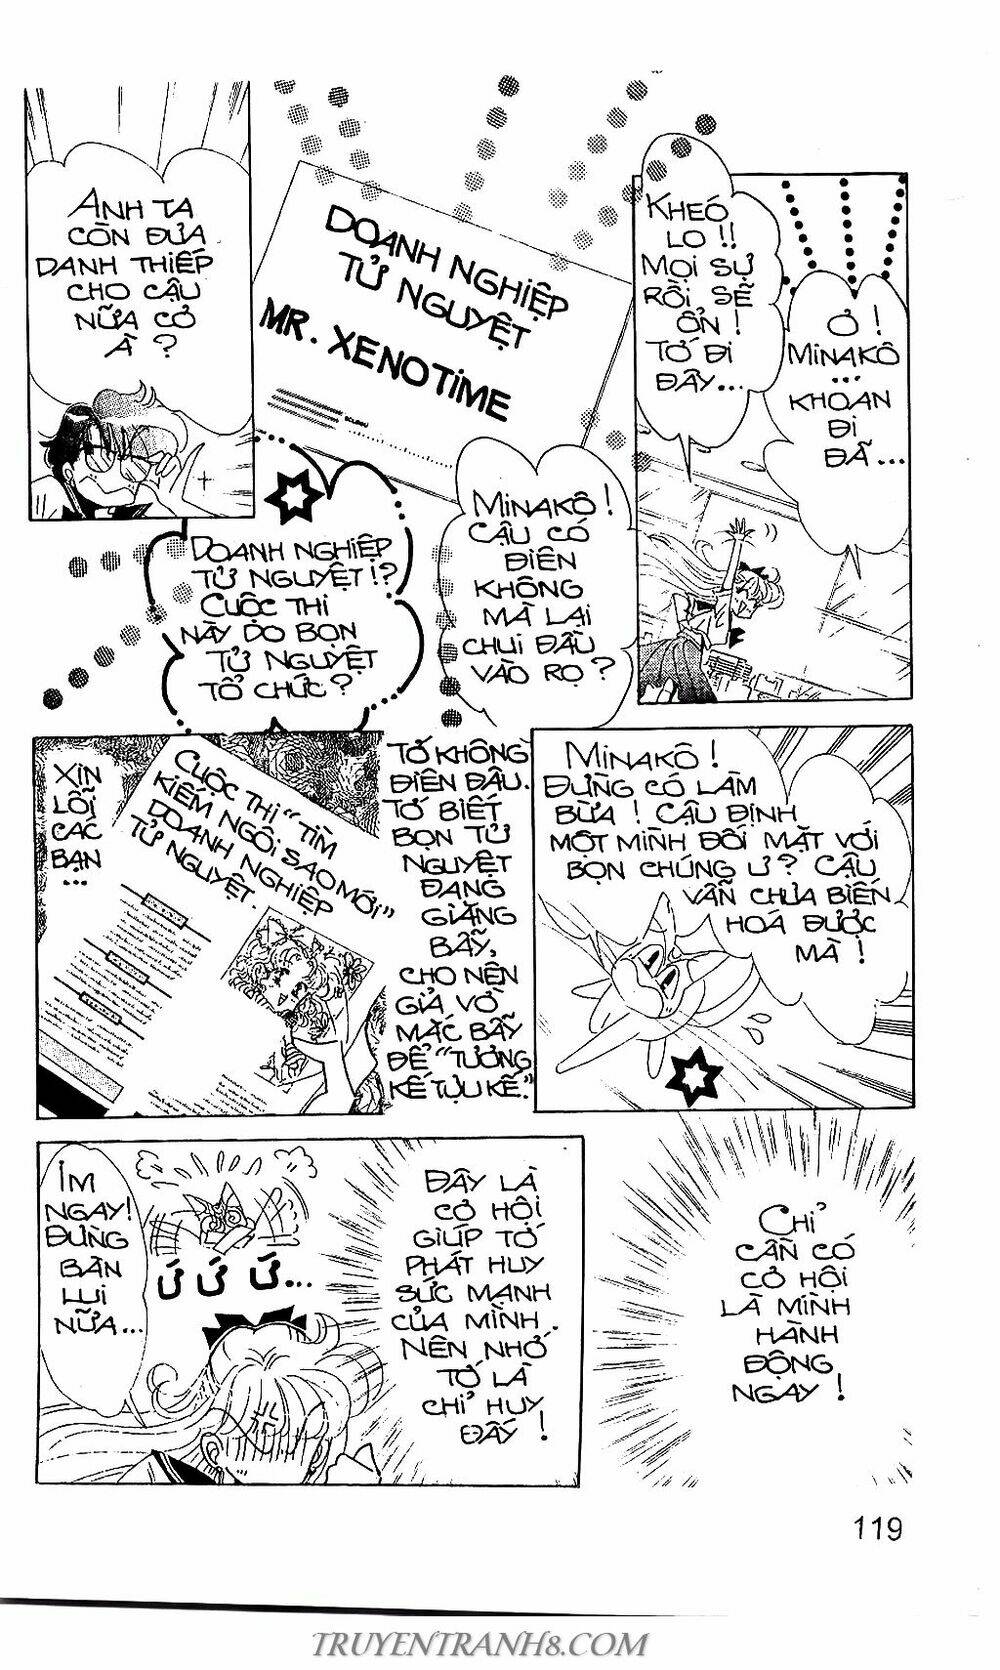 ANH TA
CÒN ĐƯA
DANH THIẾP
CHO CẬU
NỮA CƠ
À ?
DOANH NGHIỆP
TỬ NGUYỆT
MR. XENOTIME
KHÉO
LO !!
MỌI SỰ
RỒI SẼ
ỔN !
TỚ ĐI
ĐÂY...
Ơ !
MINAKÔ
...
KHOAN
ĐI
ĐÃ...
DOANH NGHIỆP
TỬ NGUYỆT !?
CUỘC THI
NÀY DO BỌN
TỬ NGUYỆT
TỔ CHỨC ?
MINAKÔ !
CẬU CÓ
ĐIÊN
KHÔNG
MÀ LẠI
CHUI ĐẦU
VÀO RỌ ?
XIN
LỖI
CÁC
BẠN
...
CUỘC THI "TÌM
KIẾM NGÔI SAO MỚI"
DOANH NGHIỆP
TỬ NGUYỆT.
TỚ KHÔNG
ĐIÊN ĐÂU.
TỚ BIẾT
BỌN TỬ
NGUYỆT
ĐANG
GIĂNG
BẪY,
CHO NÊN
GIẢ VỜ
MẮC BẪY
ĐỂ "TƯƠNG
KẾ TỰU KẾ."
MINAKÔ !
ĐỪNG CÓ LÀM
BỪA ! CẬU ĐỊNH
MỘT MÌNH ĐỐI MẶT VỚI
BỌN CHÚNG Ư ? CẬU
VẪN CHƯA BIẾN
HOÁ ĐƯỢC
MÀ !
IM
NGAY!
ĐỪNG
BÀN
LUI
NỮA...
Ứ Ứ Ứ...
ĐÂY LÀ
CƠ HỘI
GIÚP TỚ
PHÁT HUY
SỨC MẠNH
CỦA MÌNH.
NÊN NHỚ
TỚ LÀ
CHỈ HUY
ĐẤY !
CHỈ
CẦN CÓ
CƠ HỘI
LÀ MÌNH
HÀNH
ĐỘNG
NGAY !
119
TRUYENTRANH8.COM